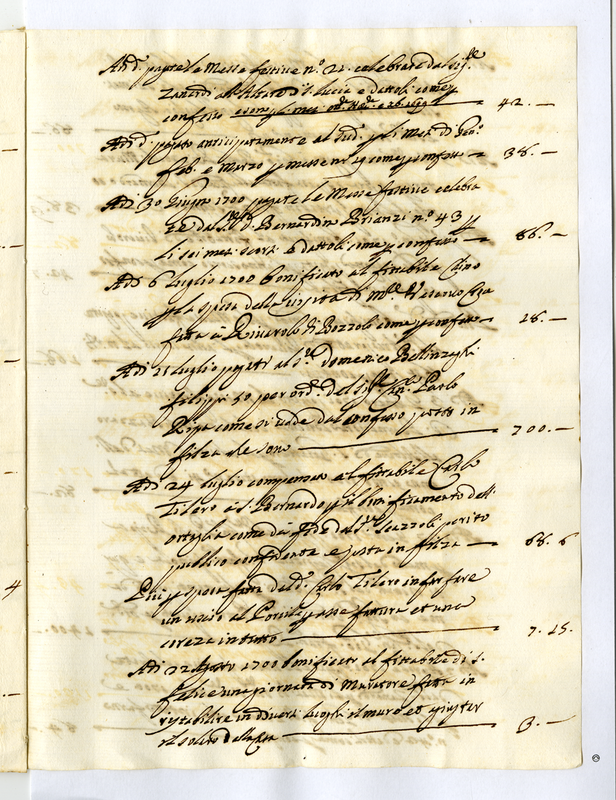 Adi d. pagate le Messe festive n.o 21. celebrate dal Sig.r
Zanardi all' Altare di S. Lucia e dattoli come
confesso 42. —
Adi d. pagato anticipatamente al Sud. p li mesi di Gen.o
Feb. e Marzo p Messe n.o 19 come p confesso — 38. —
Adi 30 Giugno 1700 pagate le Messe festive celebra
te dal S. D. Bernardin Brianzi n.o 43 p
li sei mesi scorsi e dattoli come p confesso — 86. —
Adi 6 Luglio 1700 bonificato al fittabile
p la spesa della visita di
fatta à Rivarolo di Bozzoli come p confesso — 28. —
Adi 21 Luglio pagati al S.r Domenico Bellinzaghi
filippi 50 per ord.e del Sig. Paolo
Ripa come si vede dal confesso posto in
filza che sono — 700. —
Adi 24 Luglio compensato al fittabile Carlo
Tilero à S. Bernardo p il bonificamento dell'
ortaglia come da fede dal S.r Scazzoli perito
publico confidente e posta in filza — 68. 6
E più p spesa fatta dal d.o Carlo Tilero in far fare
un uscio al Porcile p asse fattura et una
in tutto — 7. 15.
Adi 22 Agosto 1700 bonificato al fittabile di S.
Felice una giornata di Muratore fatta in
ristabilire in diversi luoghi il muro et
il solito 3. —
4